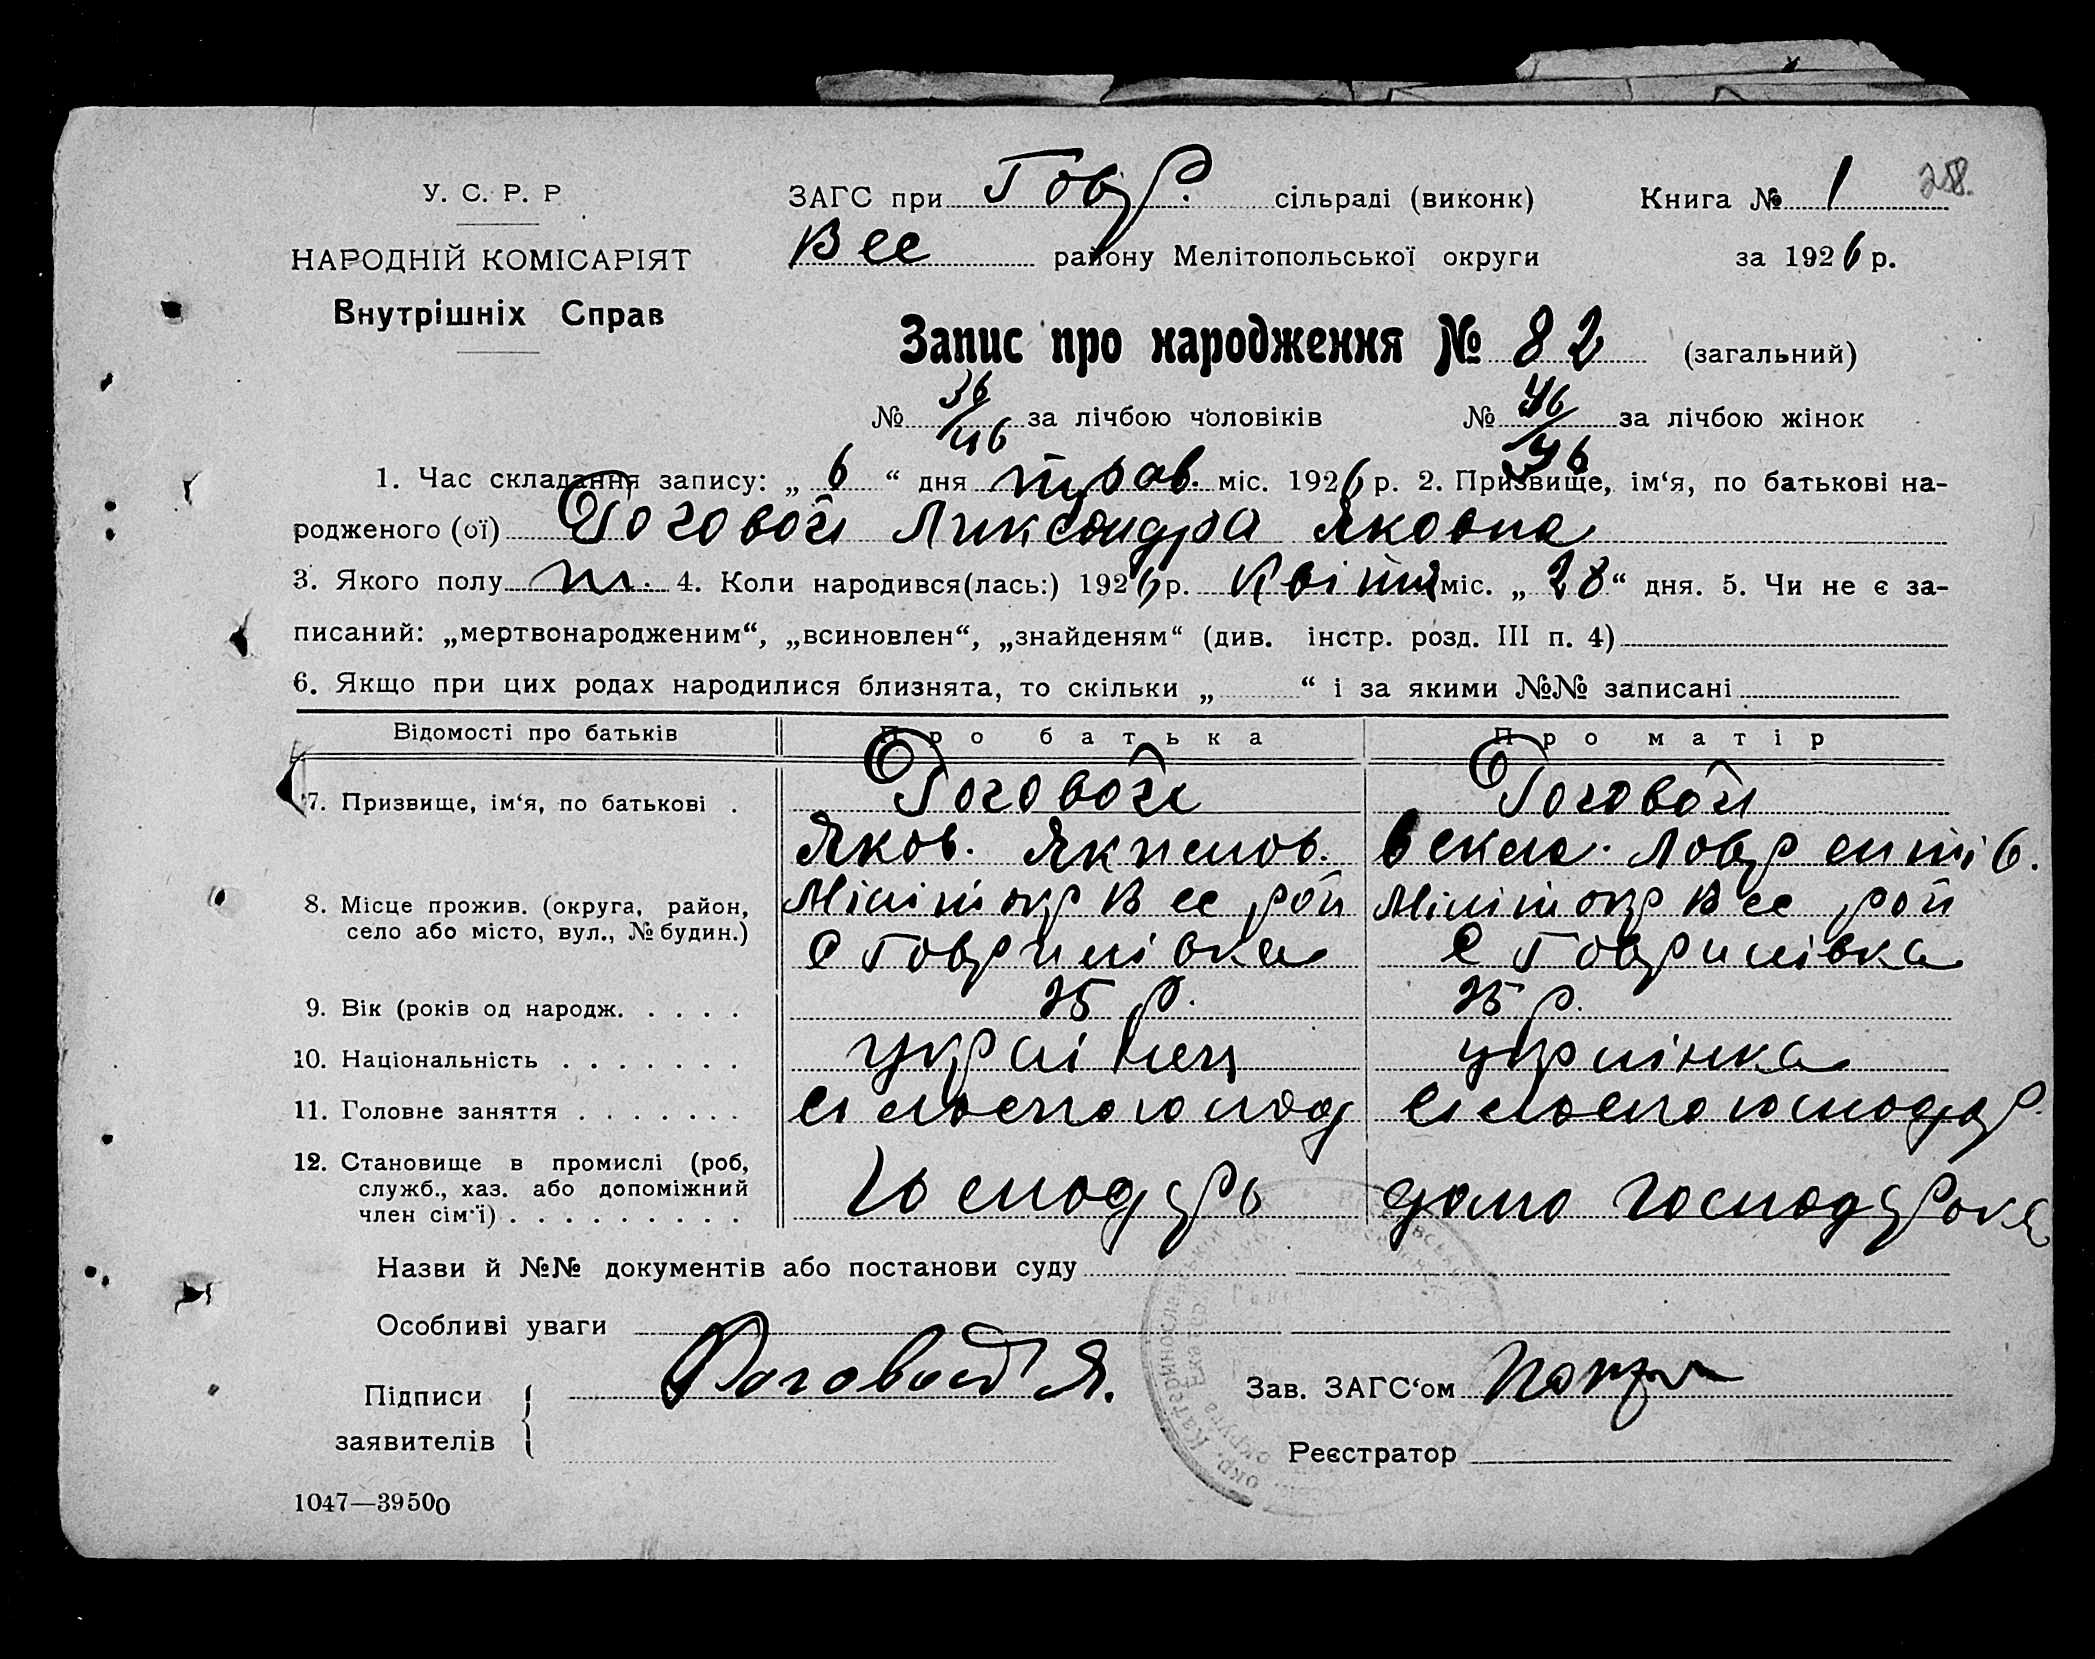 У. С. Р. Р
НАРОДНІЙ КОМІСАРІЯТ
Внутрішніх Справ
ЗАГС при Гавр. сільраді (виконк) Книга № 1 258.
Вес району Мелітопольської округи за 1926 р.
Запис про народження № 82 (загальний)
№ 36/46 за лічбою чоловіків № 46/36 за лічбою жінок
1. Час складання запису: „ 6 “ дня трав. міс. 1926 р. 2. Призвище, ім‘я, по батькові на-
родженого (ої) Роговой Александра Яковна
3. Якого полу 4. Коли народився(лась:) 1926 р. Квітня міс. „ 28 “ дня. 5. Чи не є за-
писаний: „мертвонародженим“, „всиновлен“, „знайденям“ (див. інстр. розд. III п. 4)
6. Якщо при цих родах народилися близнята, то скільки „ “ і за якими №№ записані
Відомості про батьків Про батька Про матір
7. Призвище, ім‘я, по батькові . Роговой Роговой
Яков. Якимов. Векла. Лаврентів.
8. Місце прожив. (округа, район, Міліт окр Вес рай Міліт окр Вес рай
село або місто, вул., № будин.) С Гаврилівка С Гаврилівка
9. Вік (років од народж. . . . . 25 р. 25 р.
10. Національність . . . . . . . українец українка
11. Головне заняття . . . . . . . сільсько господ сільсько господар.
12. Становище в промислі (роб,
служб., хаз. або допоміжний
член сім‘ї) . . . . . . . . . господарь домо господарка
Назви й №№ документів або постанови суду
Особливі уваги
Підписи Роговой Я. Зав. ЗАГС‘ом
заявителів Реєстратор
1047—39500